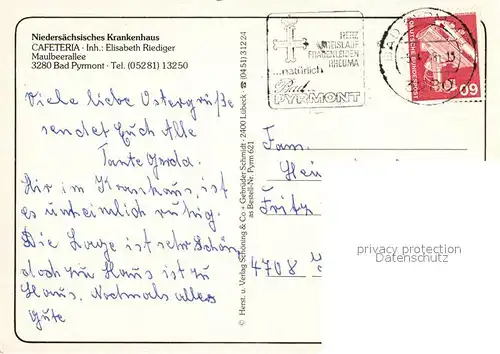 Niedersächsisches Krankenhaus
CAFETERIA · Inh.: Elisabeth Riediger
Maulbeerallee
3280 Bad Pyrmont · Tel. (05281) 13250
Viele liebe Ostergrüße
sendet Euch Alle
Tante Gerda.
Hir im Krankaus, ist
es unheimlich ruhig.
Die Lage ist sehr Schön,
doch zu Haus ist zu
Haus. Nochmals alles
Gute
© Herst. u. Verlag Schöning & Co · Gebrüder Schmidt · 2400 Lübeck · ☎ (0451) 31224
as Bestell-Nr. Pyrm 621
HERZ
KREISLAUF
FRAUENLEIDEN
RHEUMA
...natürlich
Bad
PYRMONT
DEUTSCHE BUNDESPOST
60
Fam.
Hei
Fritz
4708
privacy protection
Datenschutz